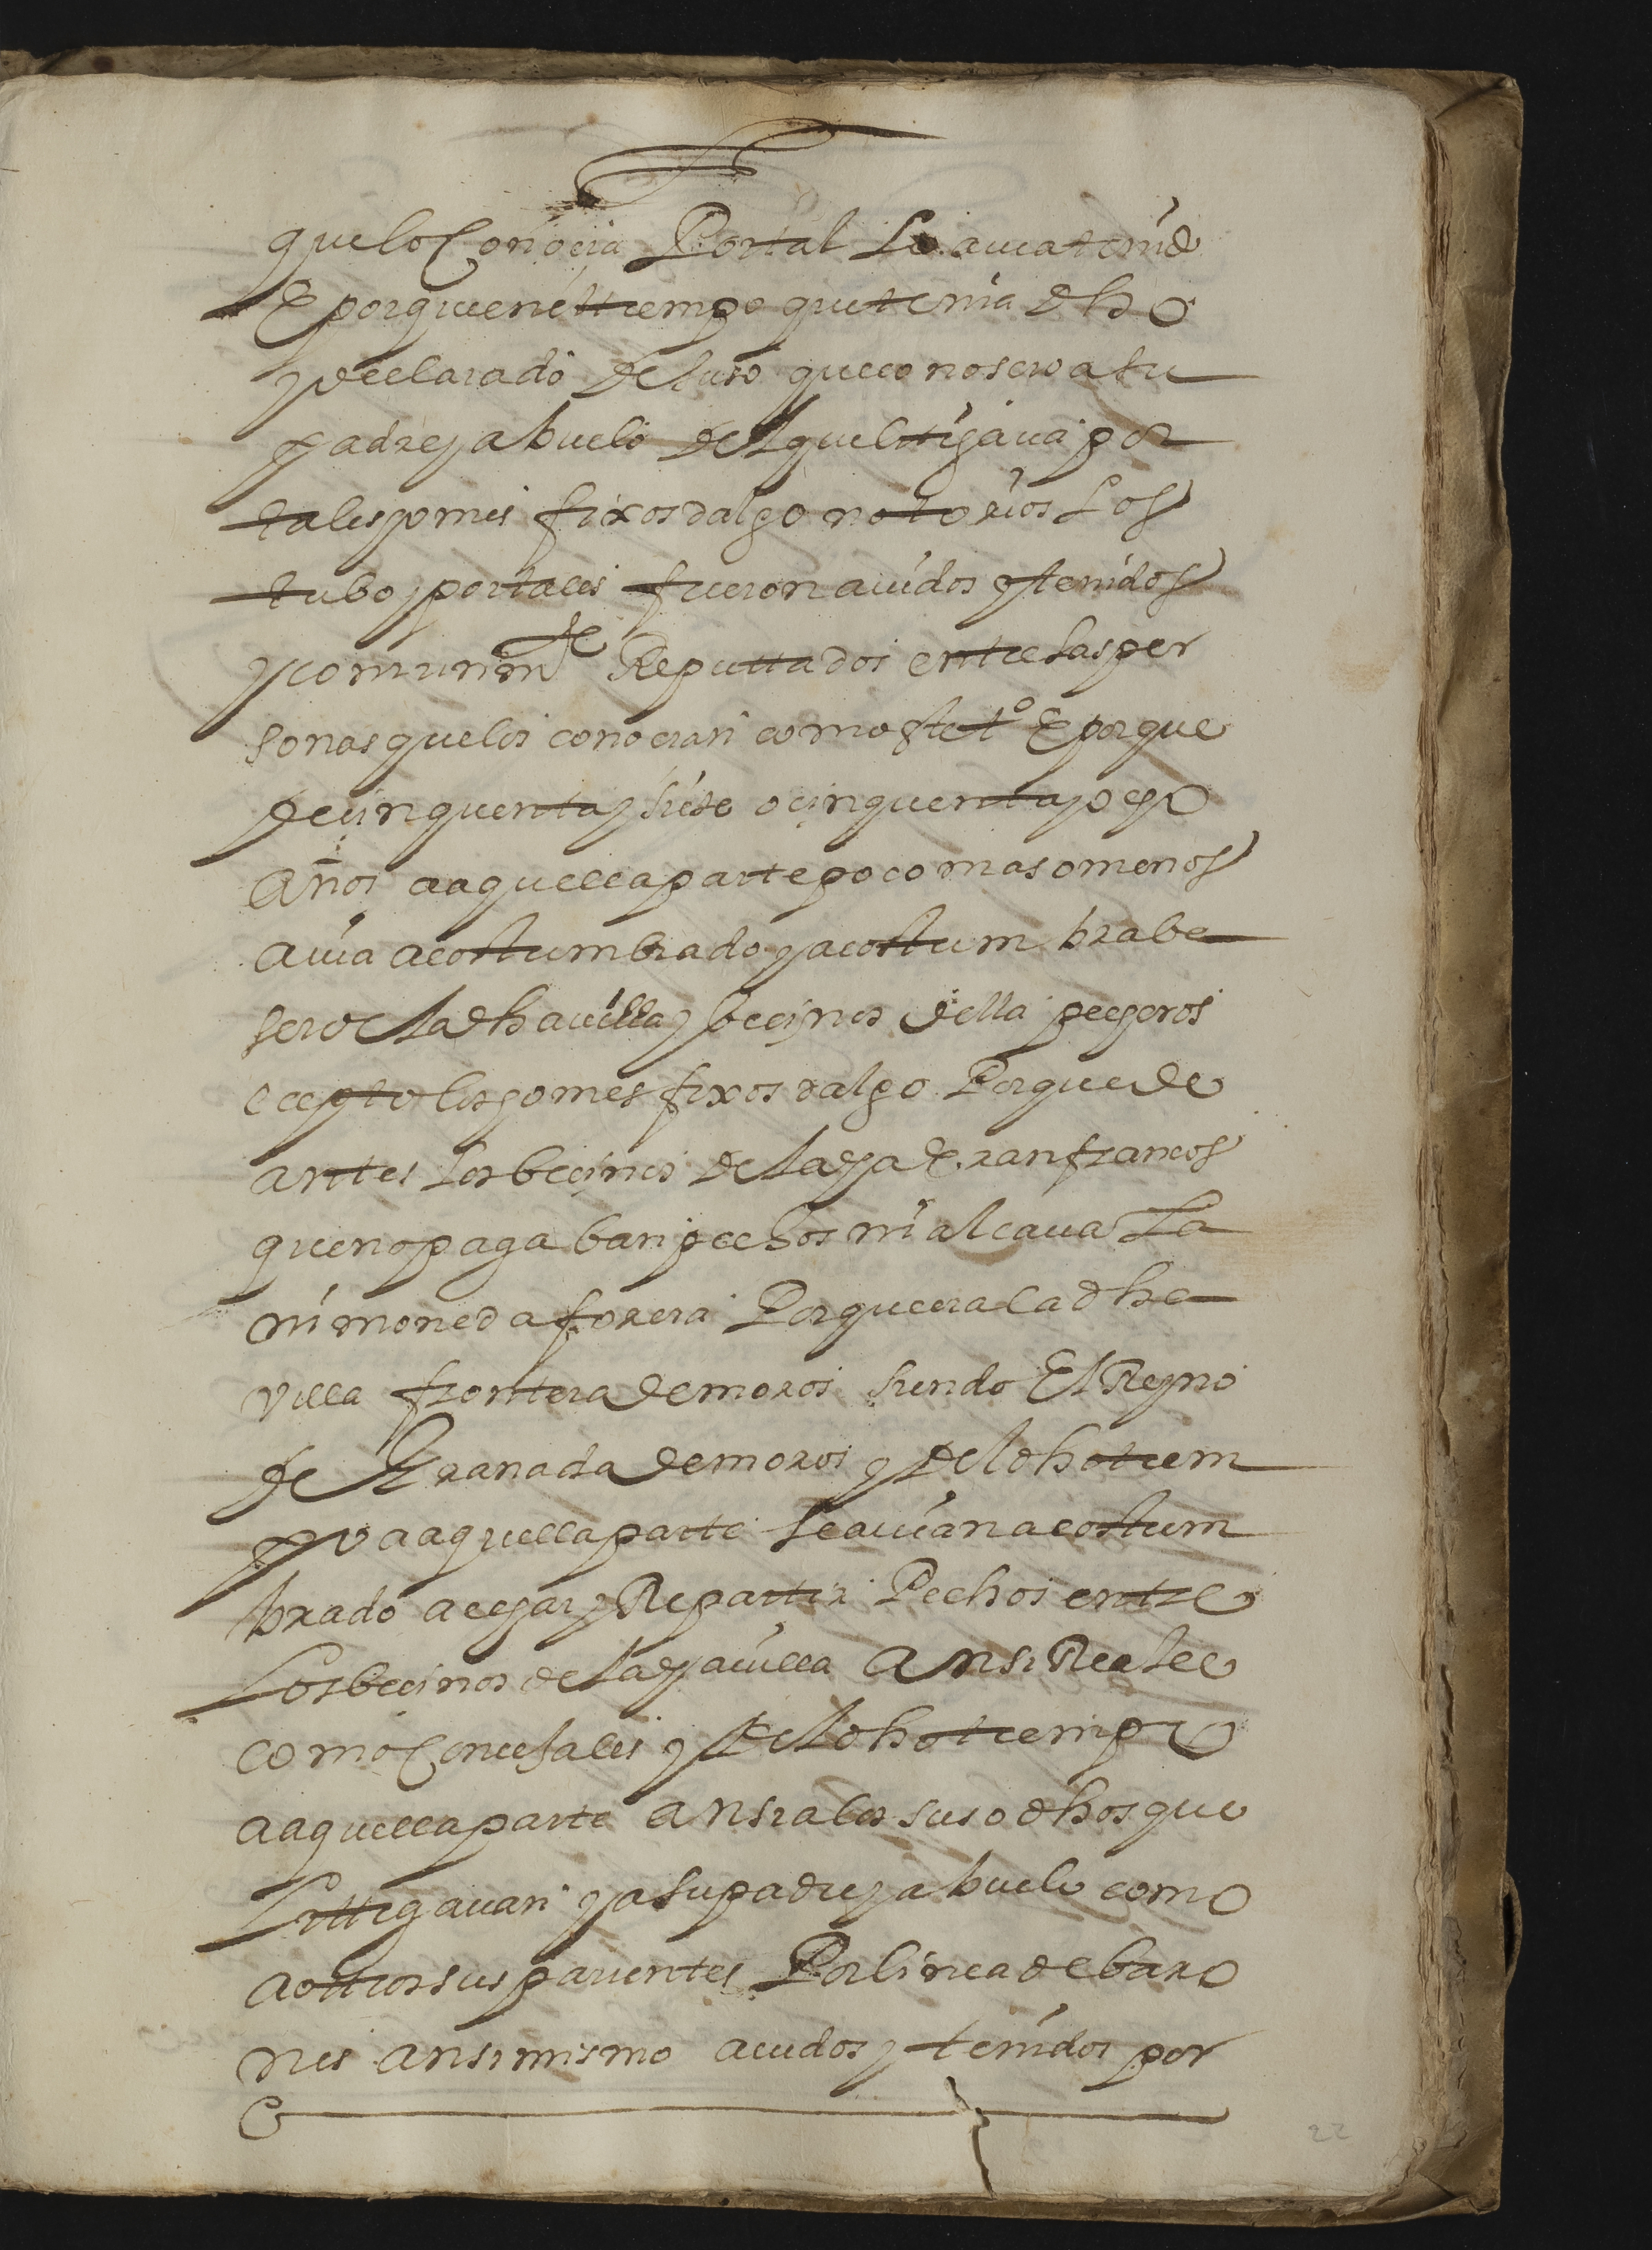 que lo Conocia Por tal Lo auia tenido
E porque en el tiempo que tenia dho
y declarado de suso que conoscio a su
padre y abuelo del que litigaua por
tales omes fixos dalgo notorios Los
tubo y por tales fueron auidos y tenidos
y comunmte Reputtados entre las per
sonas que los conocian como este to E porque
de cinquenta y siete o cinquenta y ocho
años a aquella parte poco mas o menos
auia acostumbrado y acostumbrabe
ser o la dha uilla y becinos della pecheros
ecepto los omes fixos dalgo Porque de
antes los becinos de la dha Eran francos
que no pagaban pechos ni alcauala
ni moneda forera Porque era la dha
Villa frontera de moros siendo El Reyno
de Granada de moros y del dho tiem
po a aquella parte se auian acostum
brado a echar y Repartir Pechos entre
Los becinos de la dha uilla Ansi Reales
como Concejales y del dho tiempo
a aquella parte ansi a los susodhos que
Littigauan y a su padre y abuelo como
a otros sus parientes Por linea de baro
nes ansimismo auidos y tenidos por
22